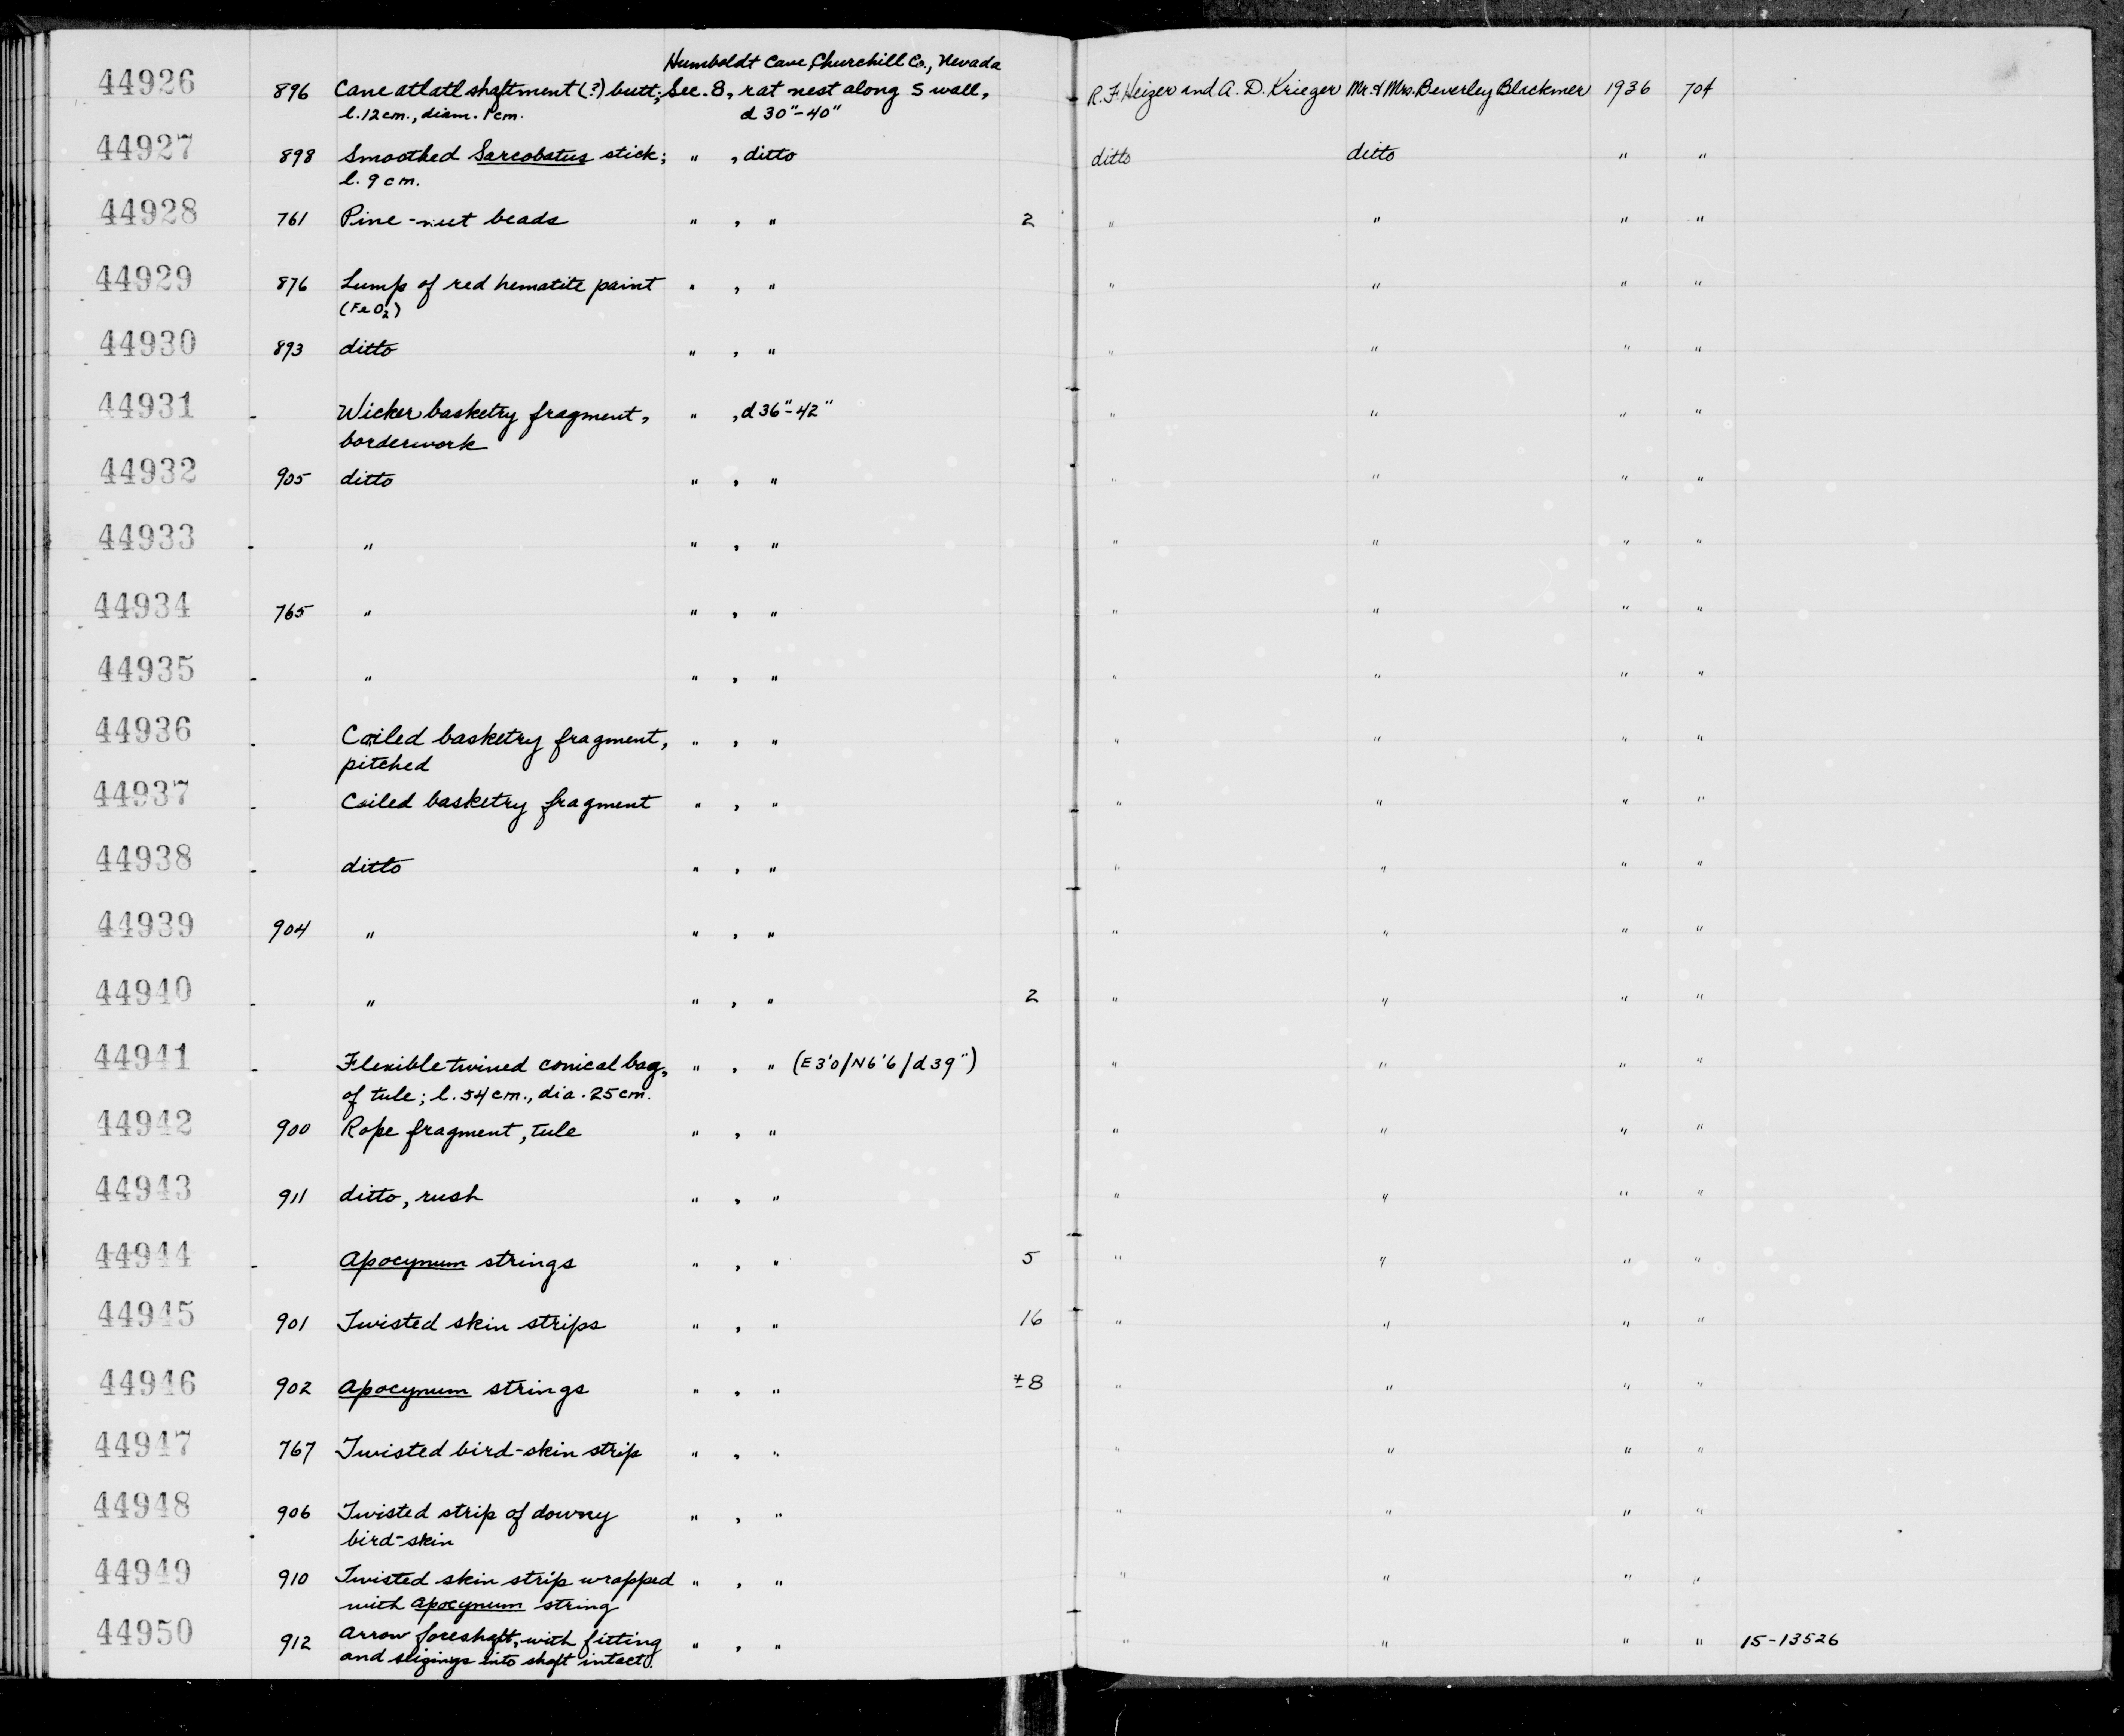 Humboldt Cave, Churchill Co., Nevada
44926 896 Cane atlatl shaftment (?) butt; Sec. 8, rat nest along S wall, R.F. Heizer and A.D. Krieger Mr. & Mrs. Beverley Blackmer 1936 704
l. 12 cm., diam. 1 cm. d 30"-40"
44927 898 Smoothed Sarcobatus stick; " , ditto ditto ditto " "
l. 9 cm.
44928 761 Pine-nut beads " , " 2 " " " "
44929 876 Lump of red hematite paint " , " " " " "
(FeO2)
44930 893 ditto " , " " " " "
44931 - Wicker basketry fragment, " , d 36"-42" " " " "
borderwork
44932 905 ditto " , " " " " "
44933 - " " , " " " " "
44934 765 " " , " " " " "
44935 - " " , " " " " "
44936 - Coiled basketry fragment, " , " " " " "
pitched
44937 - Coiled basketry fragment " , " " " " "
44938 - ditto " , " " " " "
44939 904 " " , " " " " "
44940 - " " , " 2 " " " "
44941 - Flexible twined conical bag, " , " (E3'0/N6'6/d39") " " " "
of tule; l. 54 cm., dia. 25 cm.
44942 900 Rope fragment, tule " , " " " " "
44943 911 ditto, rush " , " " " " "
44944 - Apocynum strings " , " 5 " " " "
44945 901 Twisted skin strips " , " 16 " " " "
44946 902 Apocynum strings " , " ±8 " " " "
44947 767 Twisted bird-skin strip " , " " " " "
44948 906 Twisted strip of downy " , " " " " "
bird-skin
44949 910 Twisted skin strip wrapped " , " " " " "
with Apocynum string
44950 912 Arrow foreshaft, with fitting " , " " " " " 15-13526
and into shaft intact.